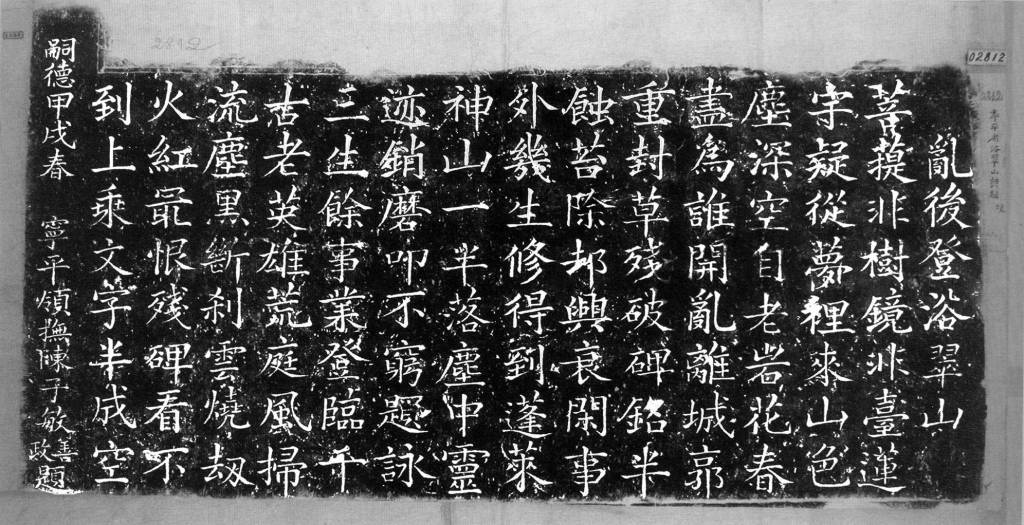 亂後登浴翠山
菩提非樹鏡非臺蓮
宇疑從夢裡來山色
塵深空自老岩花春
盡為誰開亂離城郭
重封草殘破碑銘半
蝕苔除却興衰閑事
外幾生修得到蓬萊
神山一半落塵中靈
迹銷磨叩不窮題詠
三生餘事業登臨千
古老英雄荒庭風掃
流塵黑斷刹雲燒刼
火紅最恨殘碑看不
到上乘文字半成空
嗣德甲戌春 寧平領撫陳子敏善政題
02812
2812